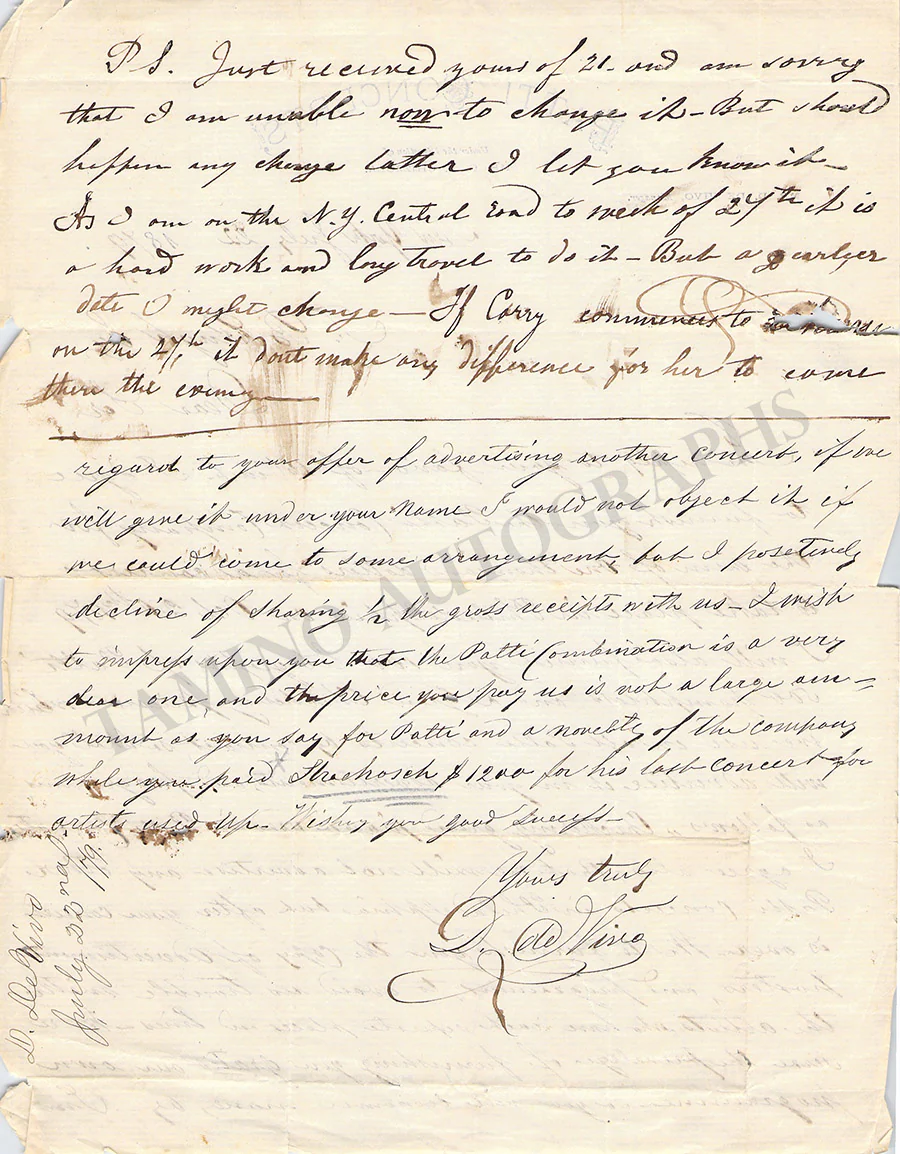 PS. Just received yours of 21- and am sorry
that I am unable now to change it - But should
happen any change latter I let you know it -
As I am on the N.Y. Central Road to week of 27th it is
a hard work and long travel to do it - But a earlyer
date I might change - If Carry commences to
on the 27th it dont make any difference for her to come
there the evening
regard to your offer of advertising another concert, if we
will give it under your Name I would not object it if
we could come to some arrangement, but I posetively
decline of sharing 1/2 the gross receipts with us - I wish
to impress upon you that the Patti Combination is a very
dear one and the price you pay us is not a large am-
mount as you say for Patti and a novelty of the company
while you paid Strackosch $1200 for his last concert for
artists used up - Wishing you good success -
Yours truly
D. de Vivo
D. De Vivo
July 22nd /79.
TAMINO AUTOGRAPHS